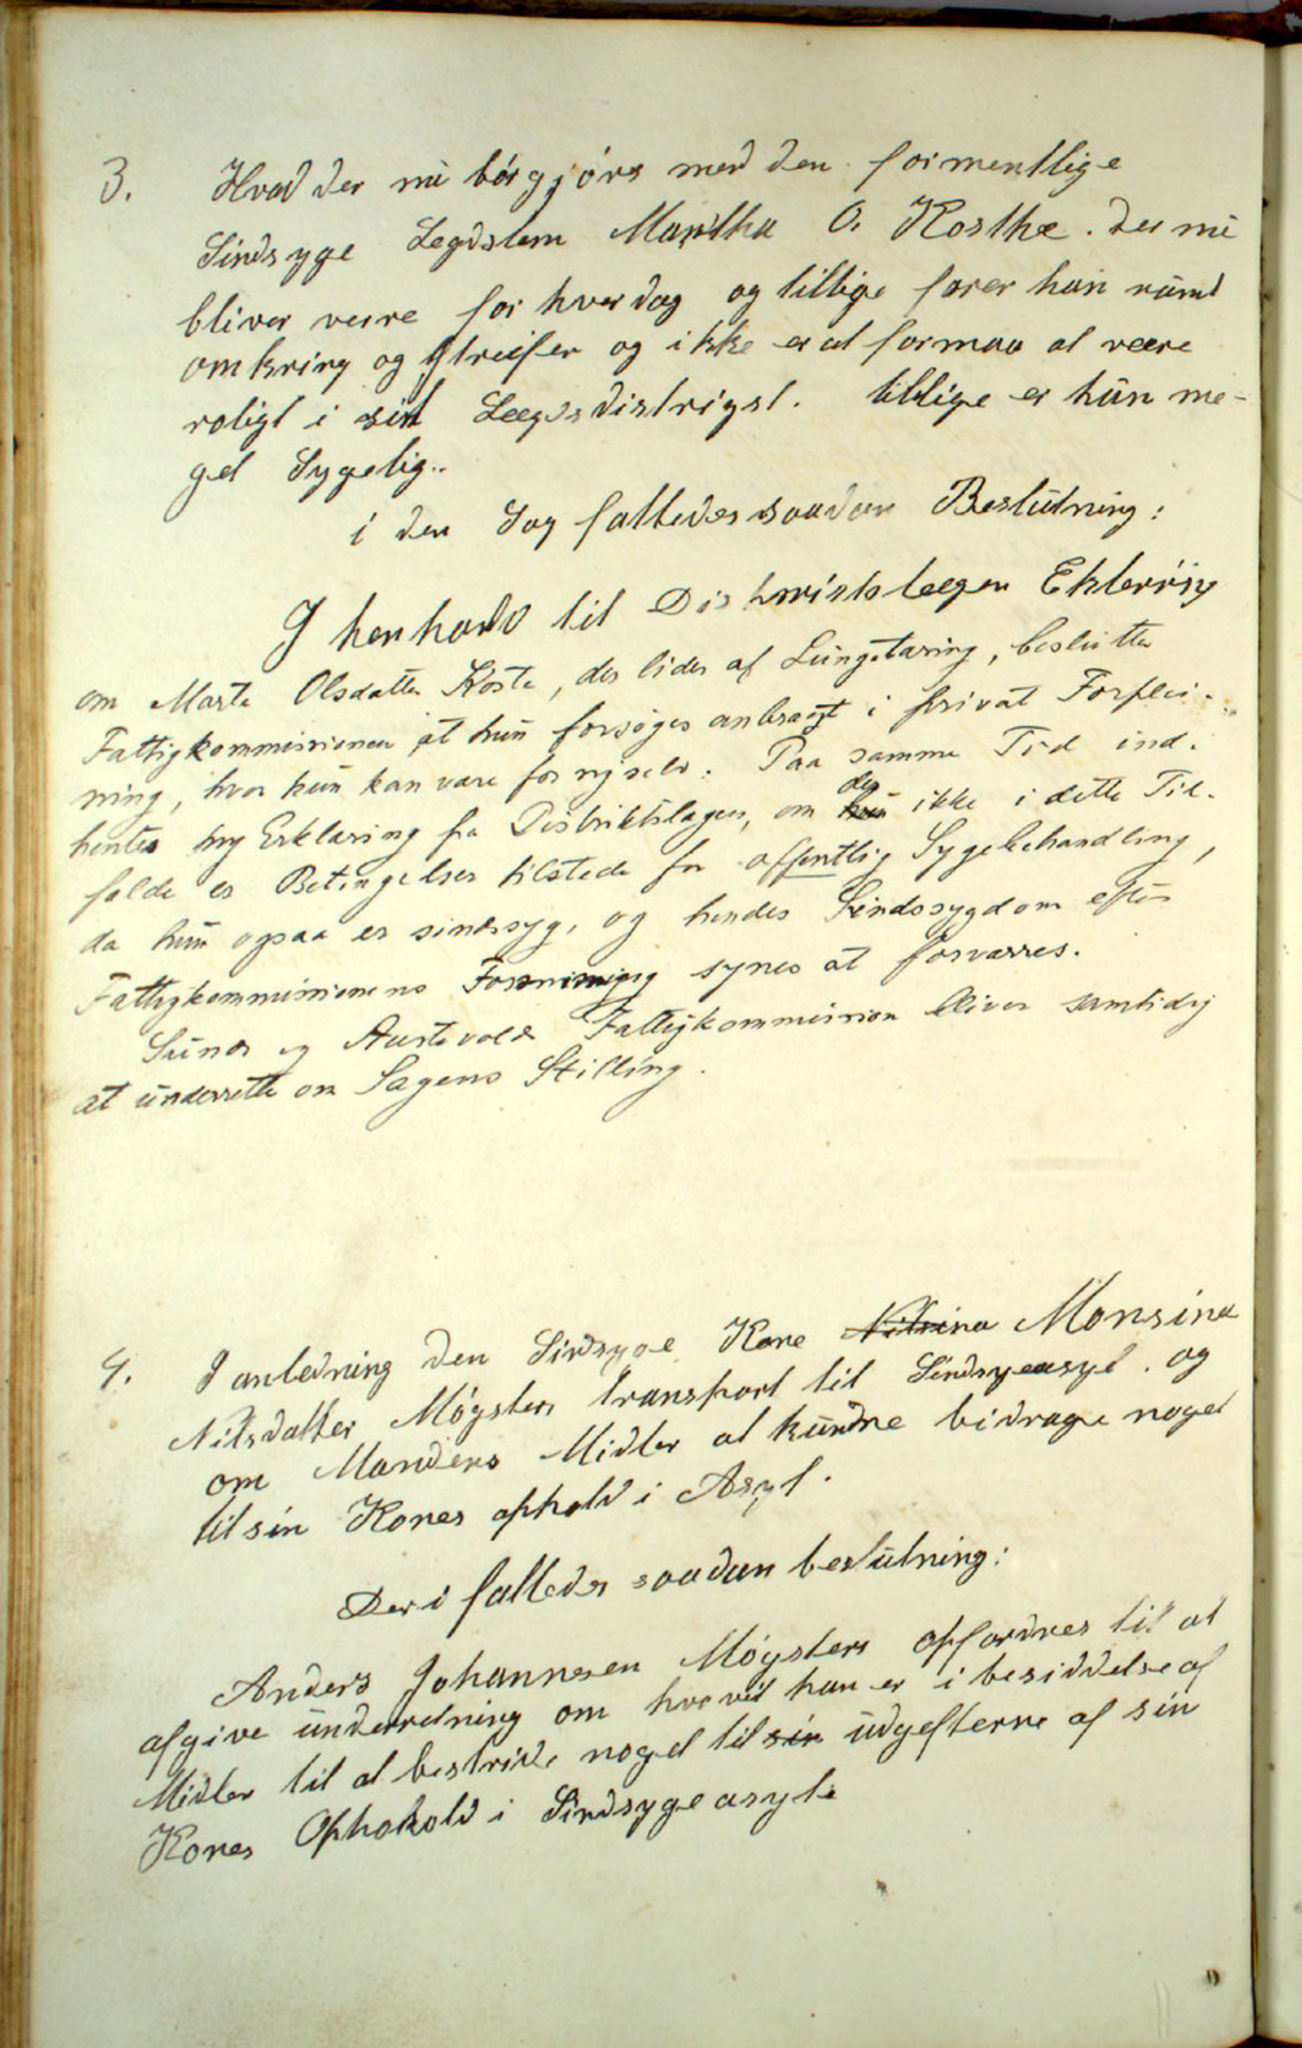 3. Hvad der nu bør gjøres med den formentlige
Sindsyge Legdslem Martha O. Kosthe. der nu
bliver verre for hver dag og tillige farer hun rundt
omkring og Streifer og ikke er at formaa at være
roligt i sit Lægdsdistrigt. tillige er hun me-
get Sygelig..
i den Sag fattedes saadan Beslutning:
I henhold til Distriktslægen Erklæring
om Marta Olsdatter Koste, der lider af Lungetæring, beslutter
Fattigkommissionen at hun forsøges anbragt i privat Forplei-
ning, hvor hun kan være for sig selv. Paa samme Tid ind-
hentes ny Erklæring fra Distriktslægen, om hun der ikke i dette Til-
fælde er Betingelser tilstede for offentlig Sygebehandling,
da hun ogsaa er sindssyg, og hendes Sindssygdom efter
Fattigkommissionens Formening synes at forværres.
Sunds og Austevolds Fattigkommission bliver samtidig
at underrette om Sagens Stilling.
4. I anledning den Sindsyge Kone Nilsina Monsine
Nilsdatter Møgsters transport til Sindsygeasyl. og
om Mandens Midler at kundne bidrage noget
til sin Kones ophold i Asyl.
Der i fattedes saadan beslutning:
Anders Johannesen Møgster opfordres til at
afgive underretning om hvorvit han er i besiddelse af
Midler til at bestride noget til sin udgifterne af sin
Kones Ophohold i Sindsygeasyle